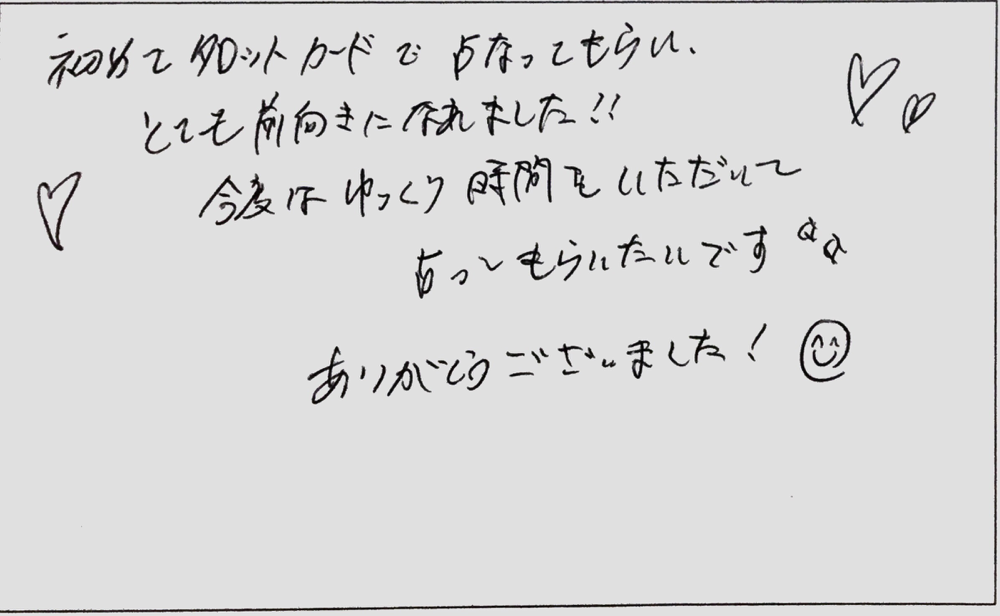 初めてタロットカードで占なってもらい、
とても前向きに作れました!!
今度はゆっくり時間をいただいて
占ってもらいたいです
ありがとうございました!